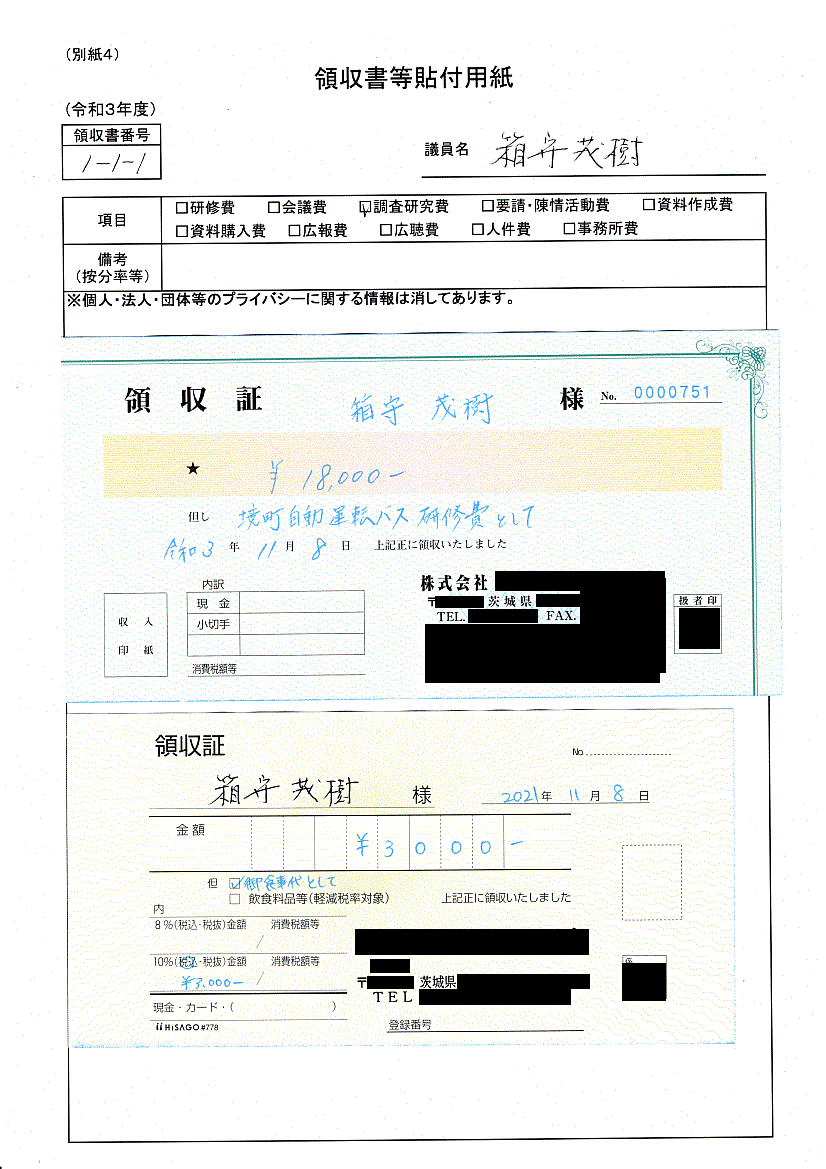 (別紙4)
領収書等貼付用紙
(令和3年度)
領収書番号
1-1-1
議員名 箱守茂樹
項目
□研修費 □会議費 ☑調査研究費 □要請・陳情活動費 □資料作成費
□資料購入費 □広報費 □広聴費 □人件費 □事務所費
備考
(按分率等)
※個人・法人・団体等のプライバシーに関する情報は消してあります。
領収証 箱守 茂樹 様 No. 0000751
★ ¥18,000-
但し 境町自動運転バス研修費として
令和3年11月8日 上記正に領収いたしました
内訳
現金
小切手
消費税額等
収入
印紙
株式会社
〒 茨城県
TEL. FAX.
扱者印
領収証
No
箱守茂樹 様 2021年11月8日
金額 ¥3000-
但 ☑御食事代として
□ 飲食料品等(軽減税率対象) 上記正に領収いたしました
内
8%(税込・税抜)金額 消費税額等
/
10%(税込・税抜)金額 消費税額等
¥3,000- /
現金・カード・( )
HiSAGO #778
〒 茨城県
TEL
登録番号
係